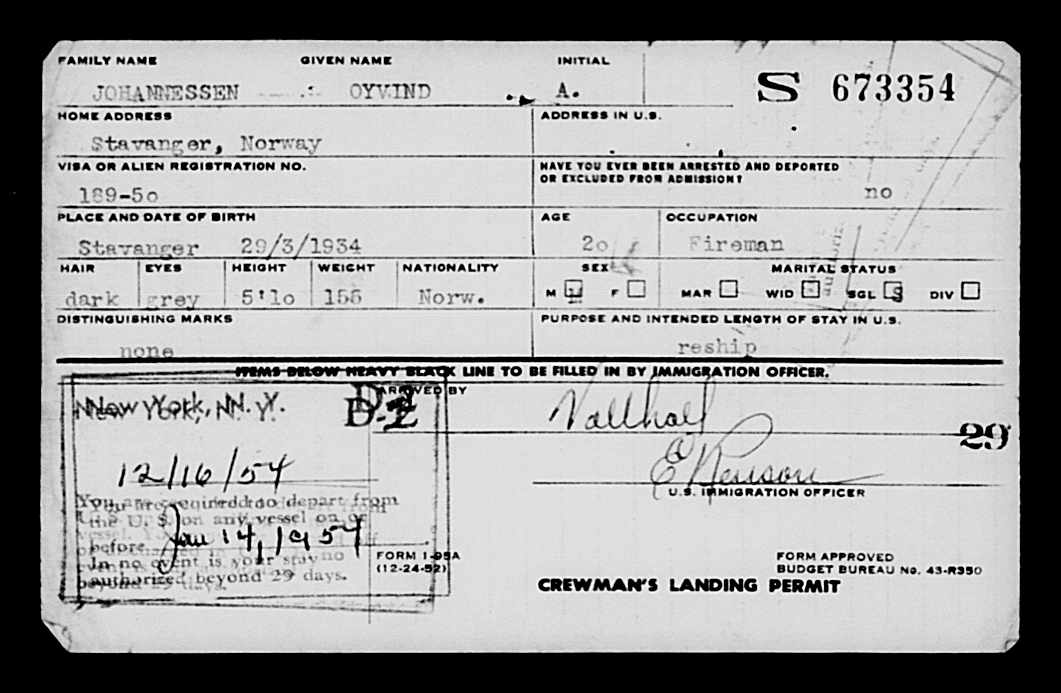 FAMILY NAME GIVEN NAME INITIAL
JOHANNESSEN OYVIND A. S 673354
HOME ADDRESS ADDRESS IN U.S.
Stavanger, Norway
VISA OR ALIEN REGISTRATION NO. HAVE YOU EVER BEEN ARRESTED AND DEPORTED
OR EXCLUDED FROM ADMISSION?
189-5o no
PLACE AND DATE OF BIRTH AGE OCCUPATION
Stavanger 29/3/1934 2o Fireman
HAIR EYES HEIGHT WEIGHT NATIONALITY SEX MARITAL STATUS
dark grey 5'1o 155 Norw. M F MAR WID SGL DIV
DISTINGUISHING MARKS PURPOSE AND INTENDED LENGTH OF STAY IN U.S.
none reship
ITEMS BELOW HEAVY BLACK LINE TO BE FILLED IN BY IMMIGRATION OFFICER.
ARRIVED BY
New York, N. Y. D-1
29
12/16/54
U.S. IMMIGRATION OFFICER
You are required to depart from
the U. S. on any vessel on or
before Jan 14, 1954
In no event is your stay
authorized beyond 29 days.
FORM I-95A
(12-24-52)
FORM APPROVED
BUDGET BUREAU No. 43-R350
CREWMAN'S LANDING PERMIT